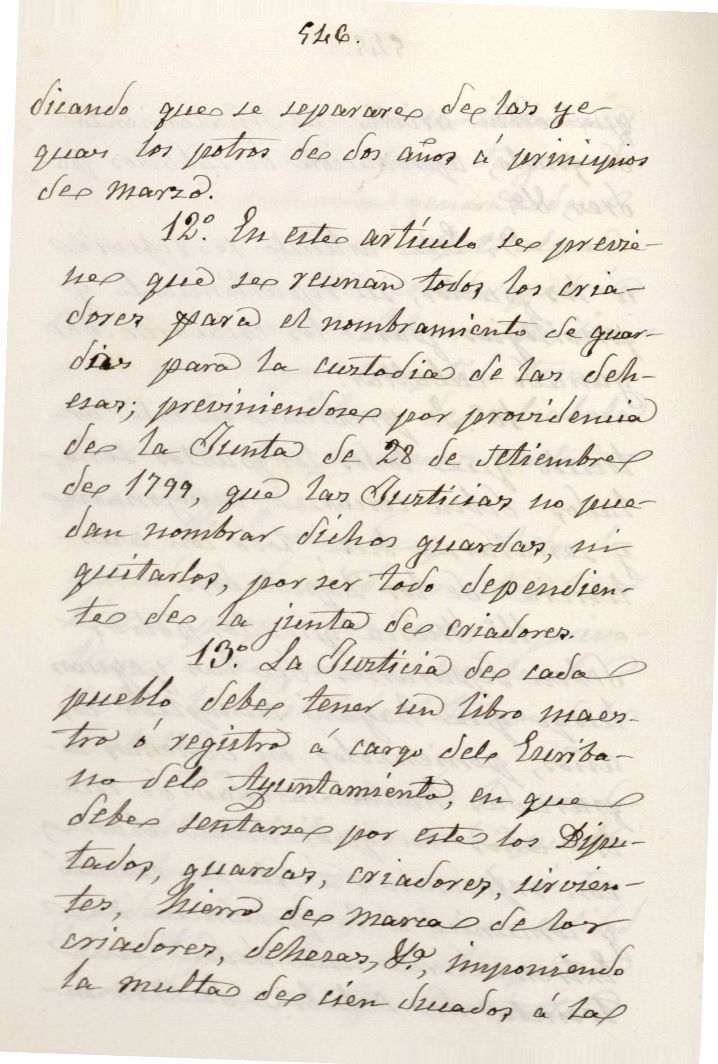 546.
dicando que se separare de las ye-
guas los potros de dos años á principios
de marzo.
12.º En este artículo se previe-
ne que se reunan todos los cria-
dores para el nombramiento de guar-
dias para la custodia de las deh-
esas; previniendose por providencia
de la Junta de 28 de Setiembre
de 1799, que las Justicias no pue-
dan nombrar dichos guardas, ni
quitarlos, por ser todo dependien-
te de la junta de criadores.
13.º La Justicia de cada
pueblo debe tener un libro maes-
tro ó registro á cargo del Escriba-
no del Ayuntamiento, en que
debe sentarse por este los Dipu-
tados, guardas, criadores, sirvien-
tes, hierro de marca de los
criadores, dehesas, &ª, imponiendo
la multa de cien ducados á la